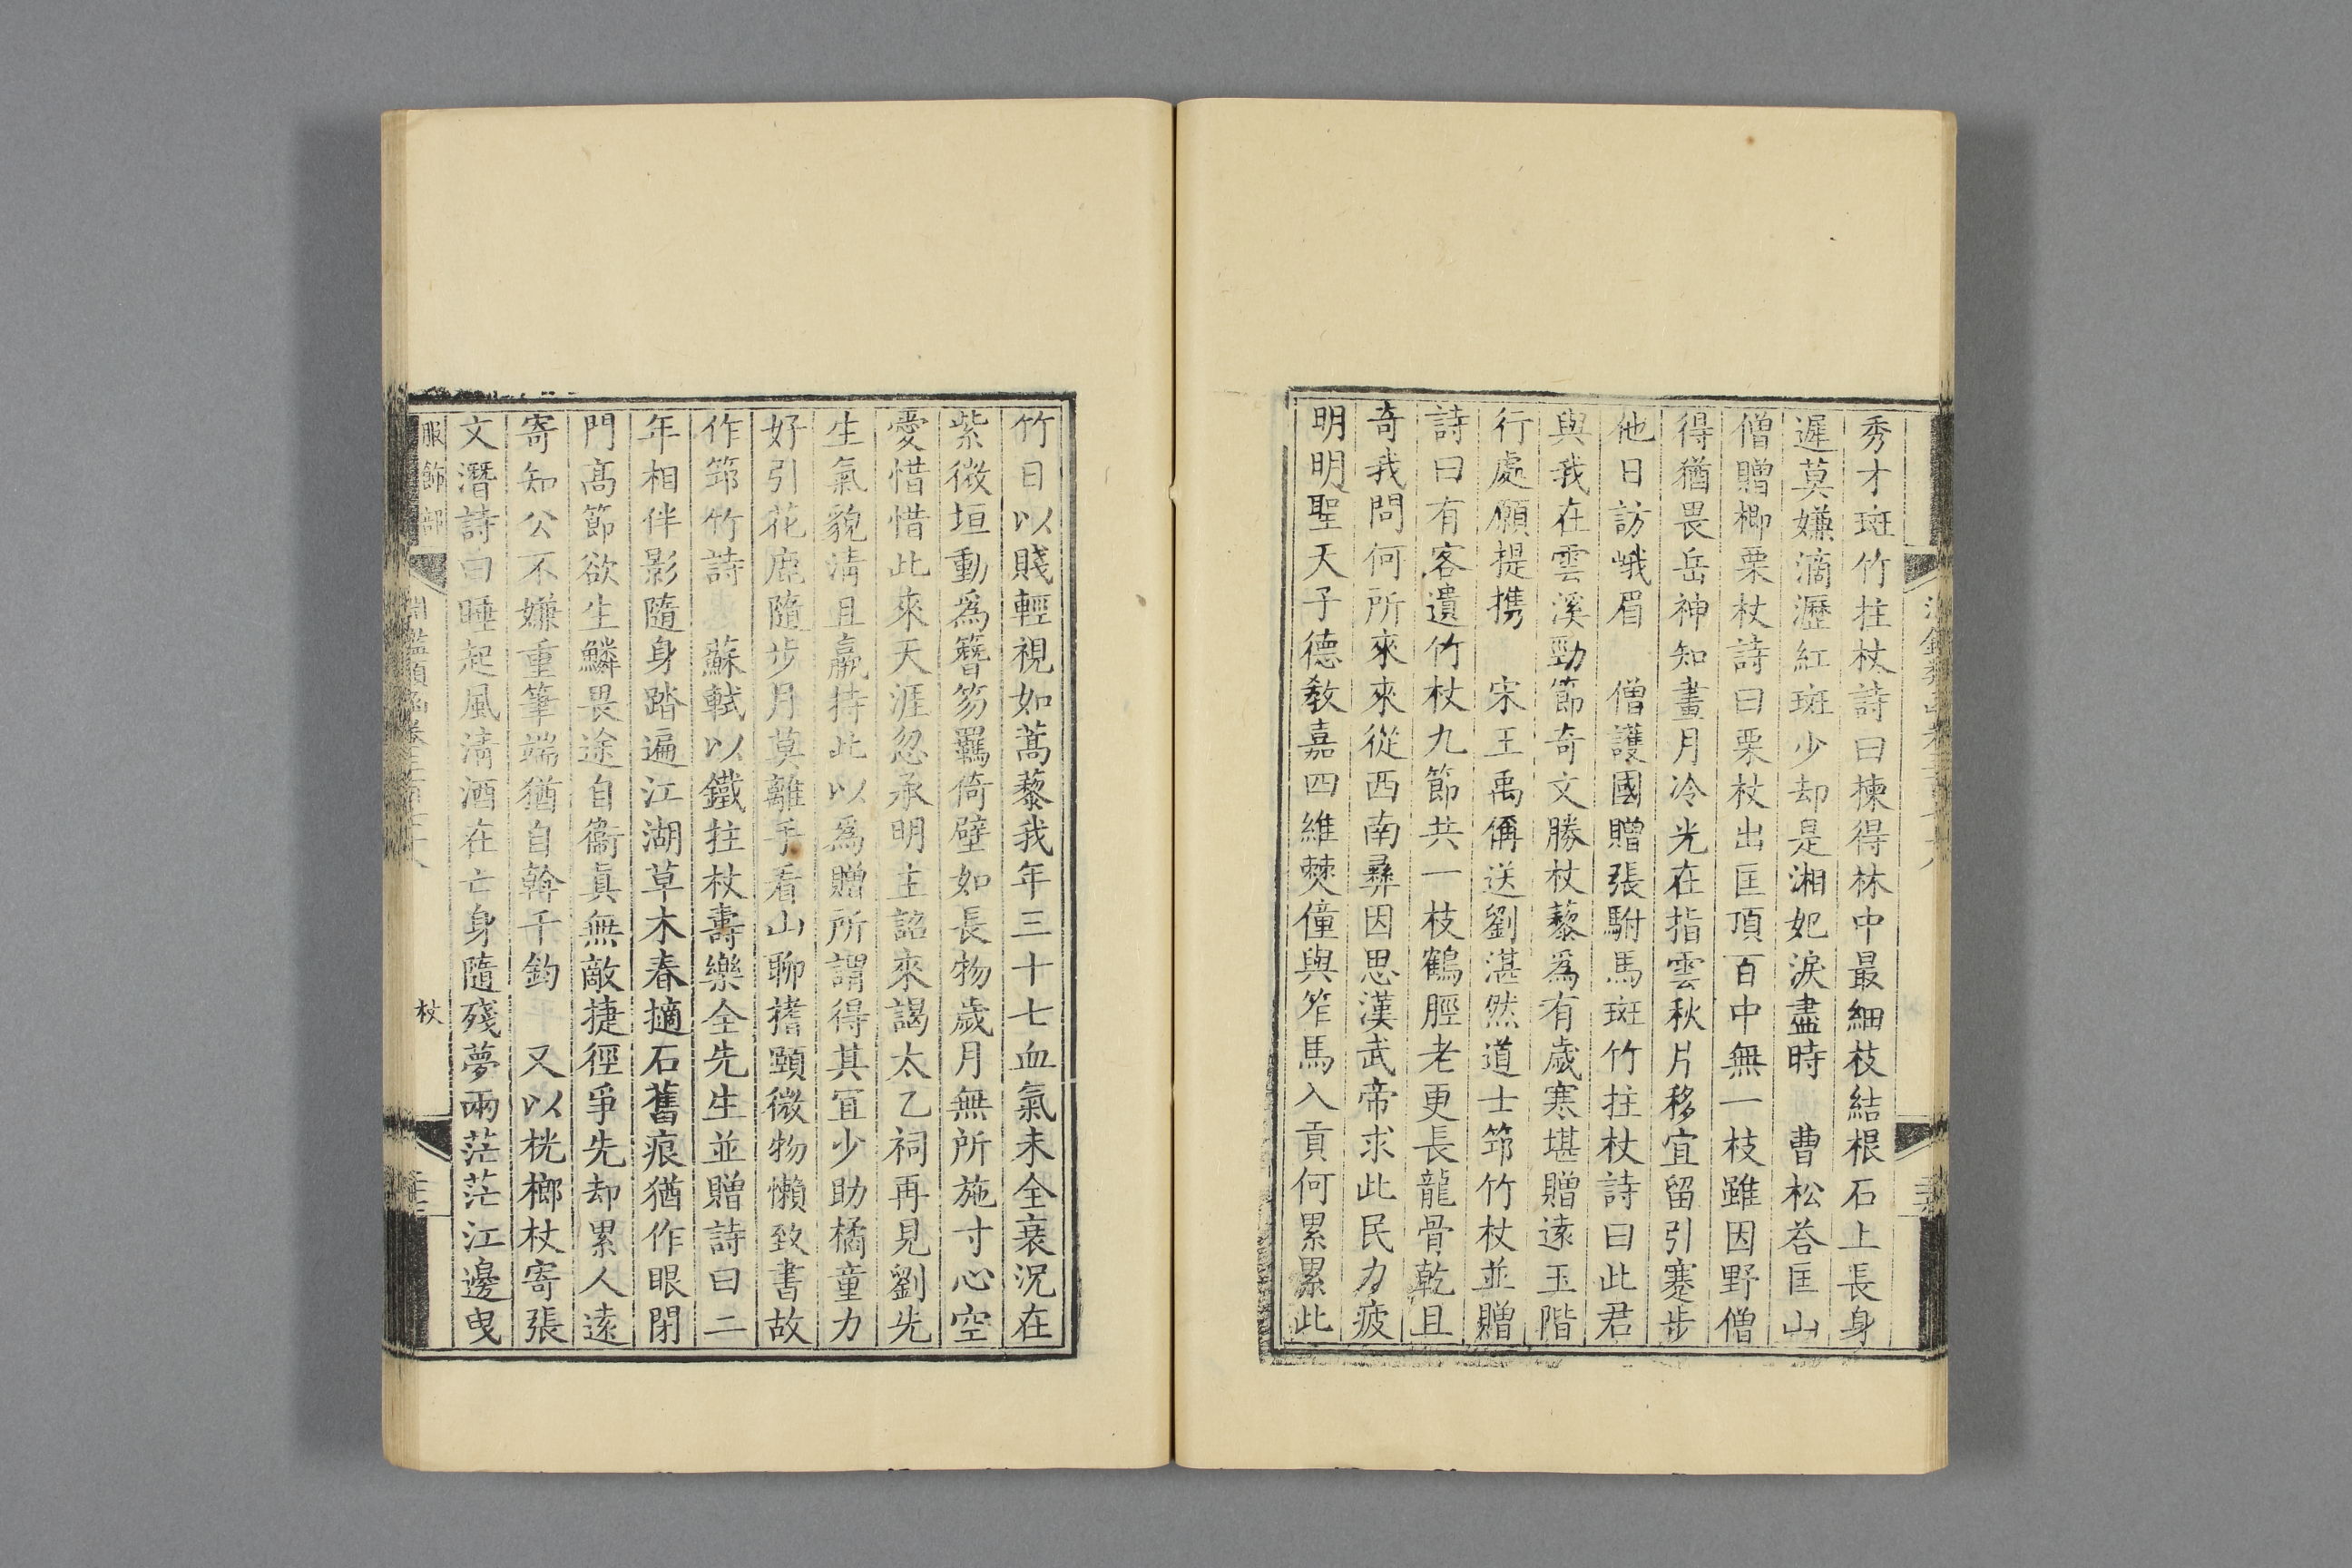 秀才斑竹拄杖詩曰揀得林中最細枝結根石上長身
遲莫嫌滴瀝紅斑少却是湘妃淚盡時　曹松荅匡山
僧贈楖栗杖詩曰栗杖出匡頂百中無一枝雖因野僧
得猶畏岳神知畫月冷光在指雲秋片移宜留引蹇步
他日訪峨眉　僧護國贈張駙馬斑竹拄杖詩曰此君
與我在雲溪勁節奇文勝杖藜爲有歲寒堪贈遠玉階
行處願提携　宋王禹偁送劉湛然道士筇竹杖並贈
詩曰有客遺竹杖九節共一枝鶴脛老更長龍骨乾且
奇我問何所來來從西南彞因思漢武帝求此民力疲
明明聖天子德敎嘉四維僰僮與笮馬入貢何累累此
竹日以賤輕視如蒿藜我年三十七血氣未全衰況在
紫微垣動爲簪笏羈倚壁如長物歲月無所施寸心空
愛惜惜此來天涯忽承明主詔來謁太乙祠再見劉先
生氣貌淸且羸持此以爲贈所謂得其宜少助橘童力
好引花鹿隨步月莫離手看山聊搘頤微物懶致書故
作筇竹詩　蘇軾以鐵拄杖壽樂全先生並贈詩曰二
年相伴影隨身踏遍江湖草木春擿石舊痕猶作眼閉
門高節欲生鱗畏途自衞眞無敵捷徑爭先却累人遠
寄知公不嫌重筆端猶自斡千鈞　又以桄榔杖寄張
文潛詩曰睡起風淸酒在亡身隨殘夢兩茫茫江邊曳
服飾部
杖